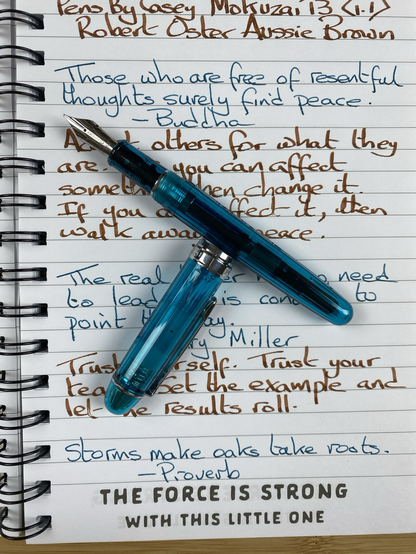 Pens By Casey Mokuzai 13 <1.1>
Robert Oster Aussie Brown
Those who are free of resentful
thoughts surely find peace.
-Buddha
others for what they
are. you can affect
then change it.
If you ffect it, then
walk awa peace.
The real need
to lead is con to
point ay.
y Miller
Trust rself. Trust your
tea Set the example and
let the results roll.
Storms make oaks take roots.
-Proverb
THE FORCE IS STRONG
WITH THIS LITTLE ONE